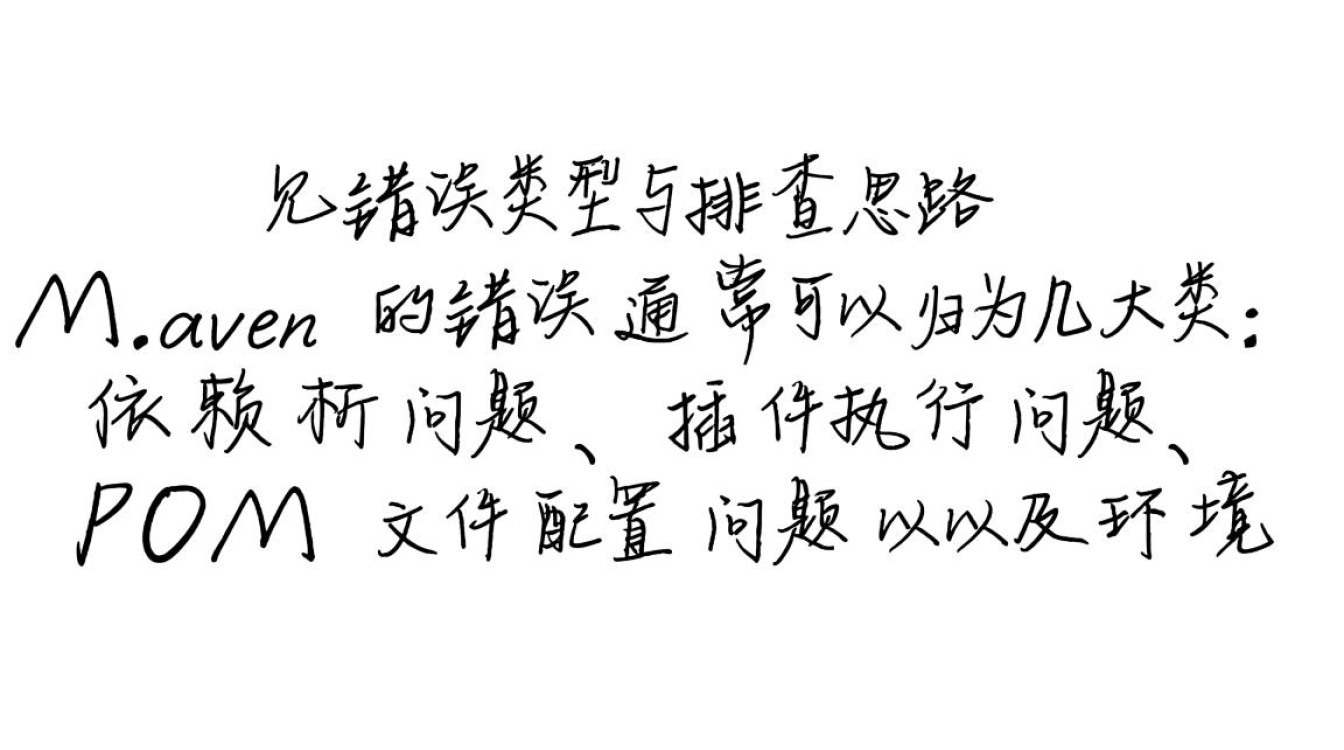 见错误类型与排查思路
M.aven 的错误通常可以归为几大类:
依赖析问题、插件执行问题、
POM 文件配置问题以以及环境